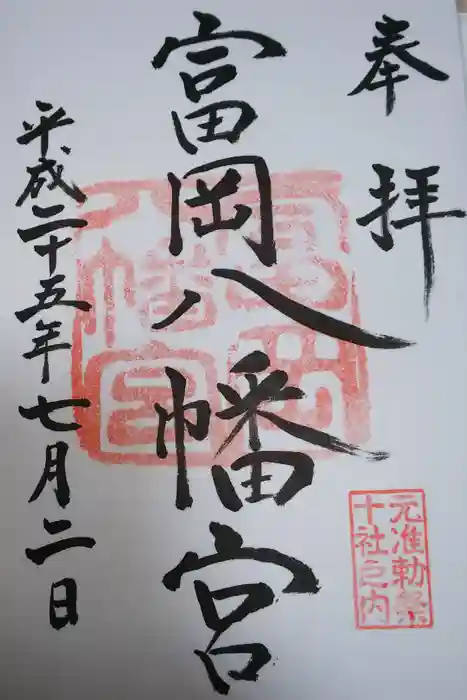 奉拝
富岡八幡宮
平成二十五年七月二日
富岡八幡宮
元准勅祭
十社之内